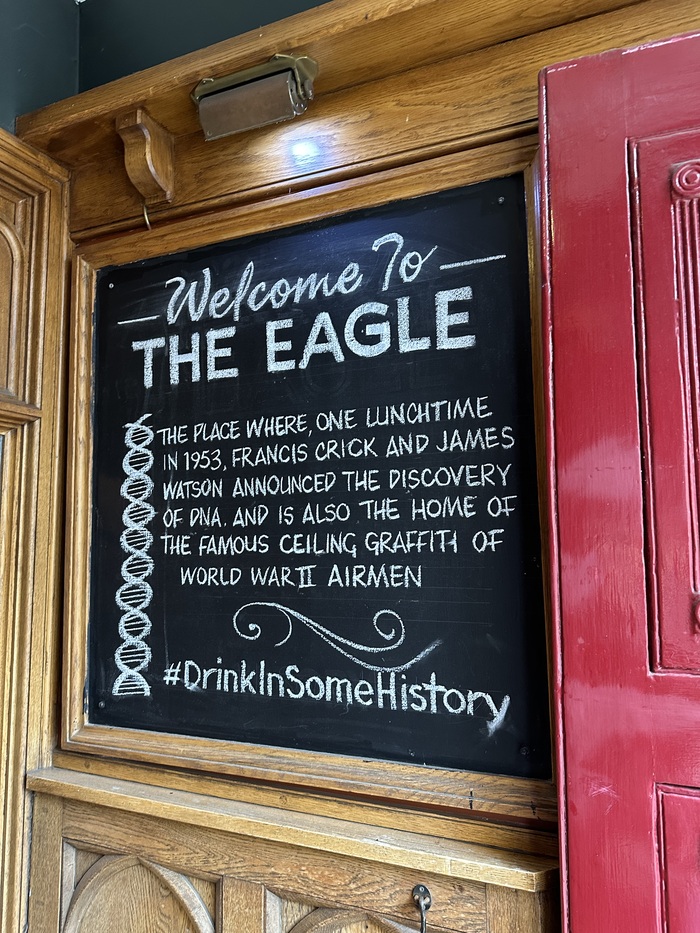 Welcome To
THE EAGLE
THE PLACE WHERE, ONE LUNCHTIME
IN 1953, FRANCIS CRICK AND JAMES
WATSON ANNOUNCED THE DISCOVERY
OF DNA, AND IS ALSO THE HOME OF
THE FAMOUS CEILING GRAFFITI OF
WORLD WAR II AIRMEN
#DrinkInSomeHistory